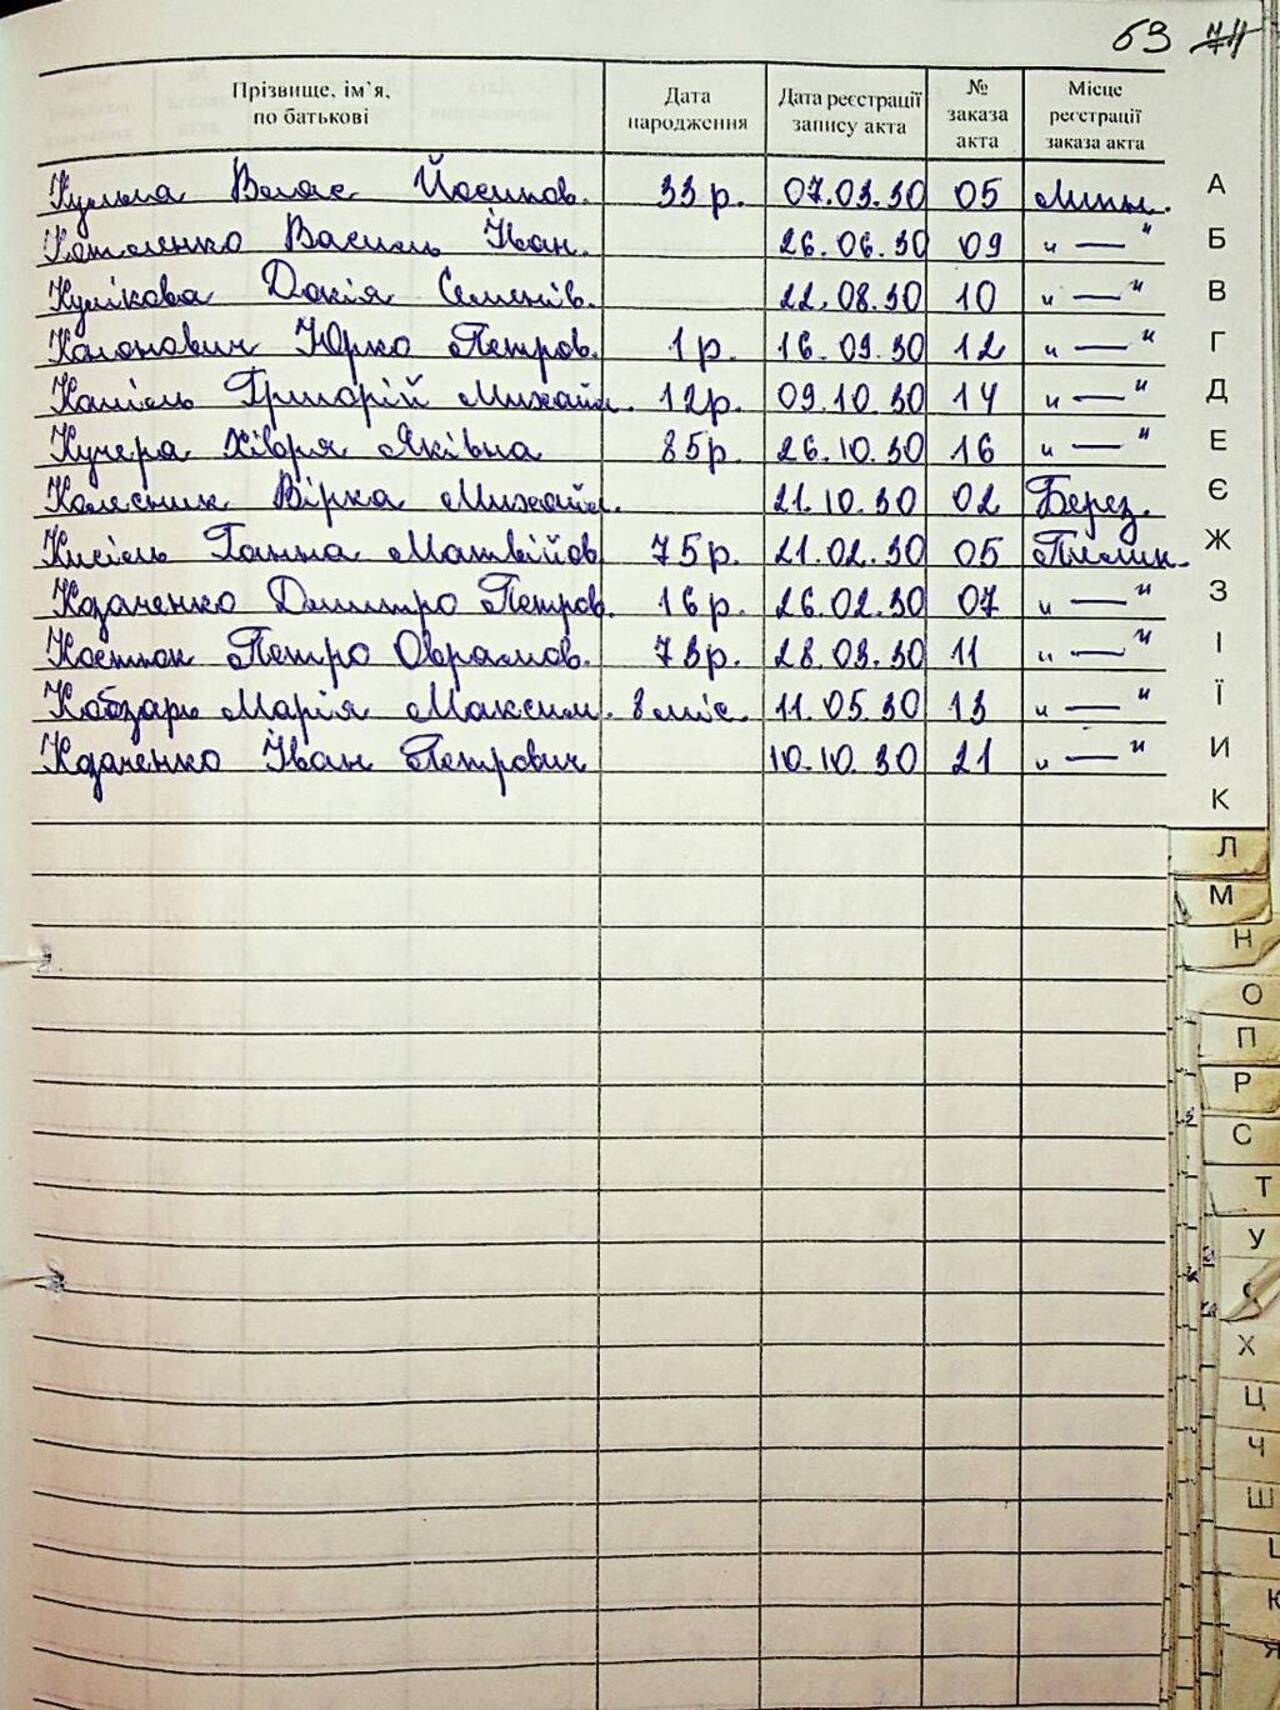 63 74
Прізвище, ім'я, по батькові Дата народження Дата реєстрації запису акта № заказа акта Місце реєстрації заказа акта
Кульша Влас Йосипов. 33 р. 07.03.30 05 Линн.
Котленко Василь Іван. 26.06.30 09 " — "
Кулікова Докія Семенів. 22.08.30 10 " — "
Кononович Юрко Петров. 1 р. 16.09.30 12 " — "
Каніль Григорій Михайл. 12 р. 09.10.30 14 " — "
Кучера Хівря Яківна 85 р. 26.10.30 16 " — "
Колесник Вірка Михайл. 21.10.30 02 Берез.
Кисіль Ганна Матвійов. 75 р. 21.02.30 05 Пилип.
Козаченко Дмитро Петров. 16 р. 26.02.30 07 " — "
Костюк Петро Оврамов. 73 р. 28.03.30 11 " — "
Кобзарь Марія Максим. 8 міс. 11.05.30 13 " — "
Козаченко Іван Петрович 10.10.30 21 " — "
А
Б
В
Г
Д
Е
Є
Ж
З
І
Ї
И
К
Л
М
Н
О
П
Р
С
Т
У
Х
Ц
Ч
Ш
Ю
Я